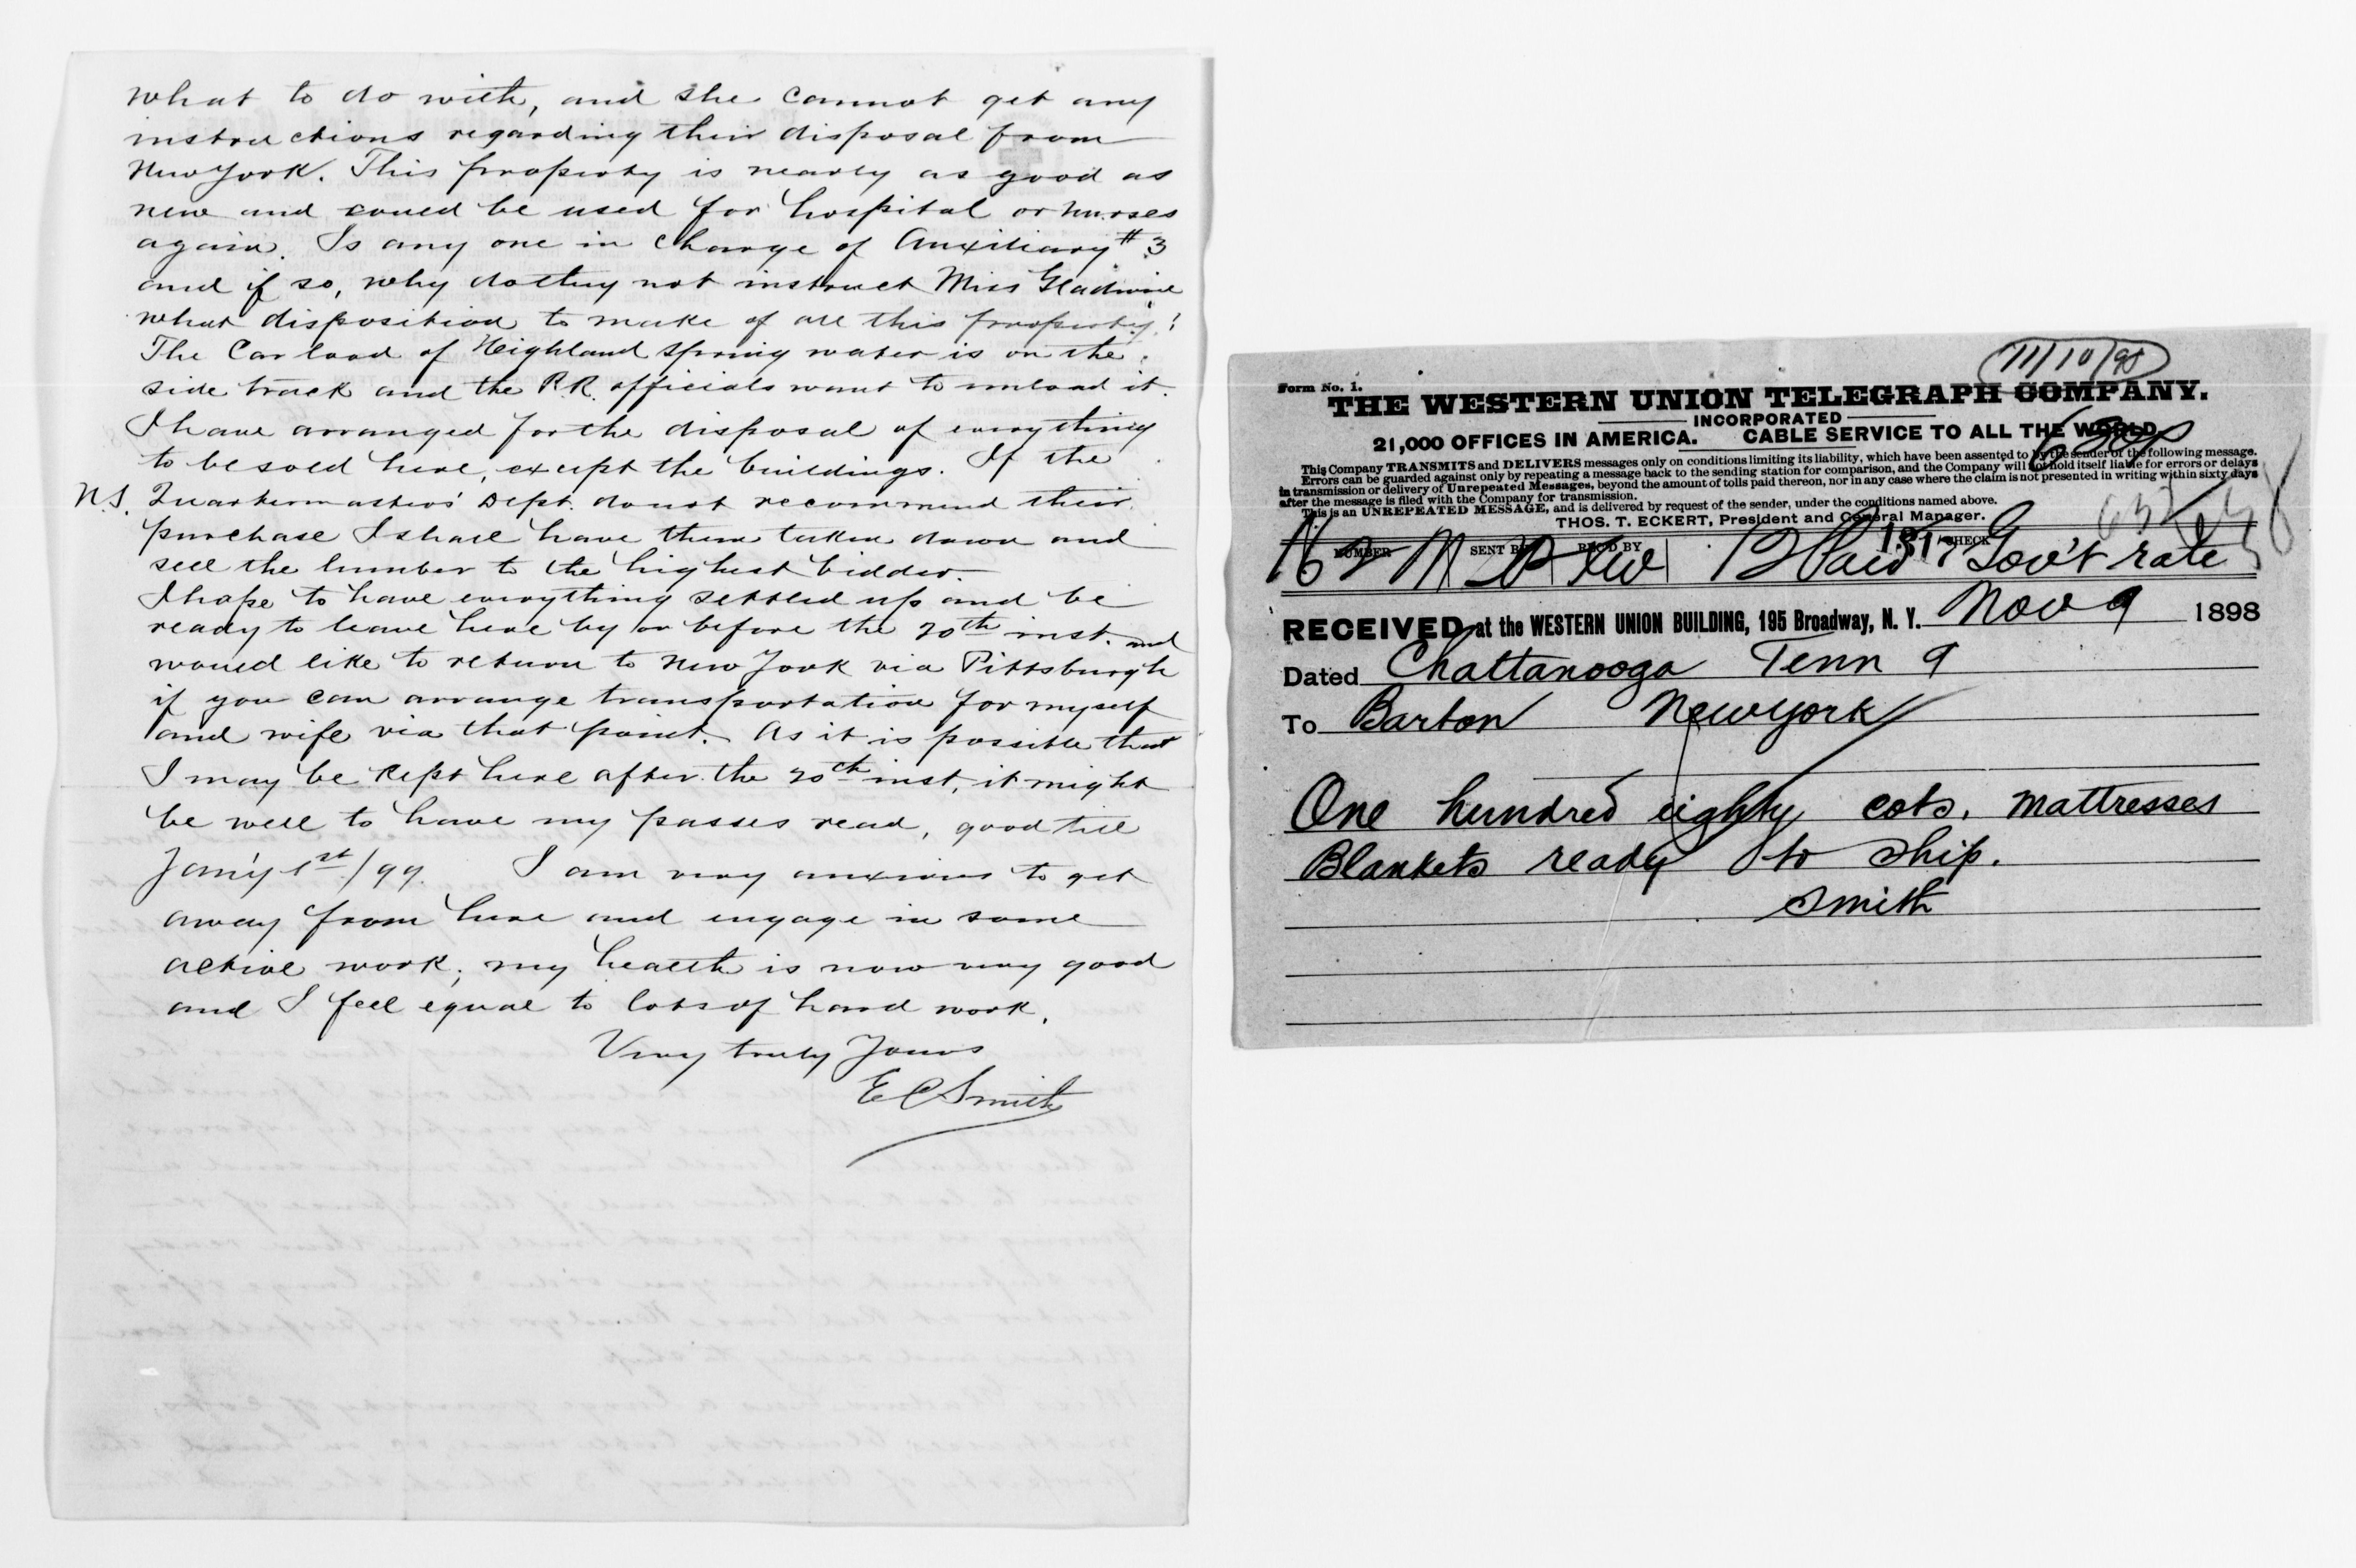 what to do with, and she cannot get any
instructions regarding their disposal from
New York. This property is nearly as good as
new and could be used for hospital or nurses
again. Is any one in charge of Auxiliary #3
and if so, why do they not instruct Miss Gladwin
what disposition to make of all this property?
The Car load of Highland Spring water is on the
side track and the R.R. officials want to unload it.
I have arranged for the disposal of everything
to be sold here, except the buildings. If the
U.S. Quartermasters' Dept. do not recommend their
purchase I shall have them taken down and
sell the lumber to the highest bidder.
I hope to have everything settled up and be
ready to leave here by or before the 20th inst. and
would like to return to New York via Pittsburgh
if you can arrange transportation for myself
and wife via that point. As it is possible that
I may be kept here after the 20th inst, it might
be well to have my passes read, good till
Jan'y 1st/99. I am very anxious to get
away from here and engage in some
active work; my health is now very good
and I feel equal to lots of hard work.
Very truly Yours
E C Smith
11/10/98
Form No. 1.
THE WESTERN UNION TELEGRAPH COMPANY.
INCORPORATED
21,000 OFFICES IN AMERICA. CABLE SERVICE TO ALL THE WORLD.
This Company TRANSMITS and DELIVERS messages only on conditions limiting its liability, which have been assented to by the sender of the following message.
Errors can be guarded against only by repeating a message back to the sending station for comparison, and the Company will not hold itself liable for errors or delays
in transmission or delivery of Unrepeated Messages, beyond the amount of tolls paid thereon, nor in any case where the claim is not presented in writing within sixty days
after the message is filed with the Company for transmission.
This is an UNREPEATED MESSAGE, and is delivered by request of the sender, under the conditions named above.
THOS. T. ECKERT, President and General Manager.
NUMBER SENT BY REC'D BY CHECK
162 12 Paid Gov't rate
RECEIVED at the WESTERN UNION BUILDING, 195 Broadway, N. Y. Nov 9 1898
Dated Chattanooga Tenn 9
To Barton New York
One hundred eighty cots, mattresses
Blankets ready to ship.
Smith